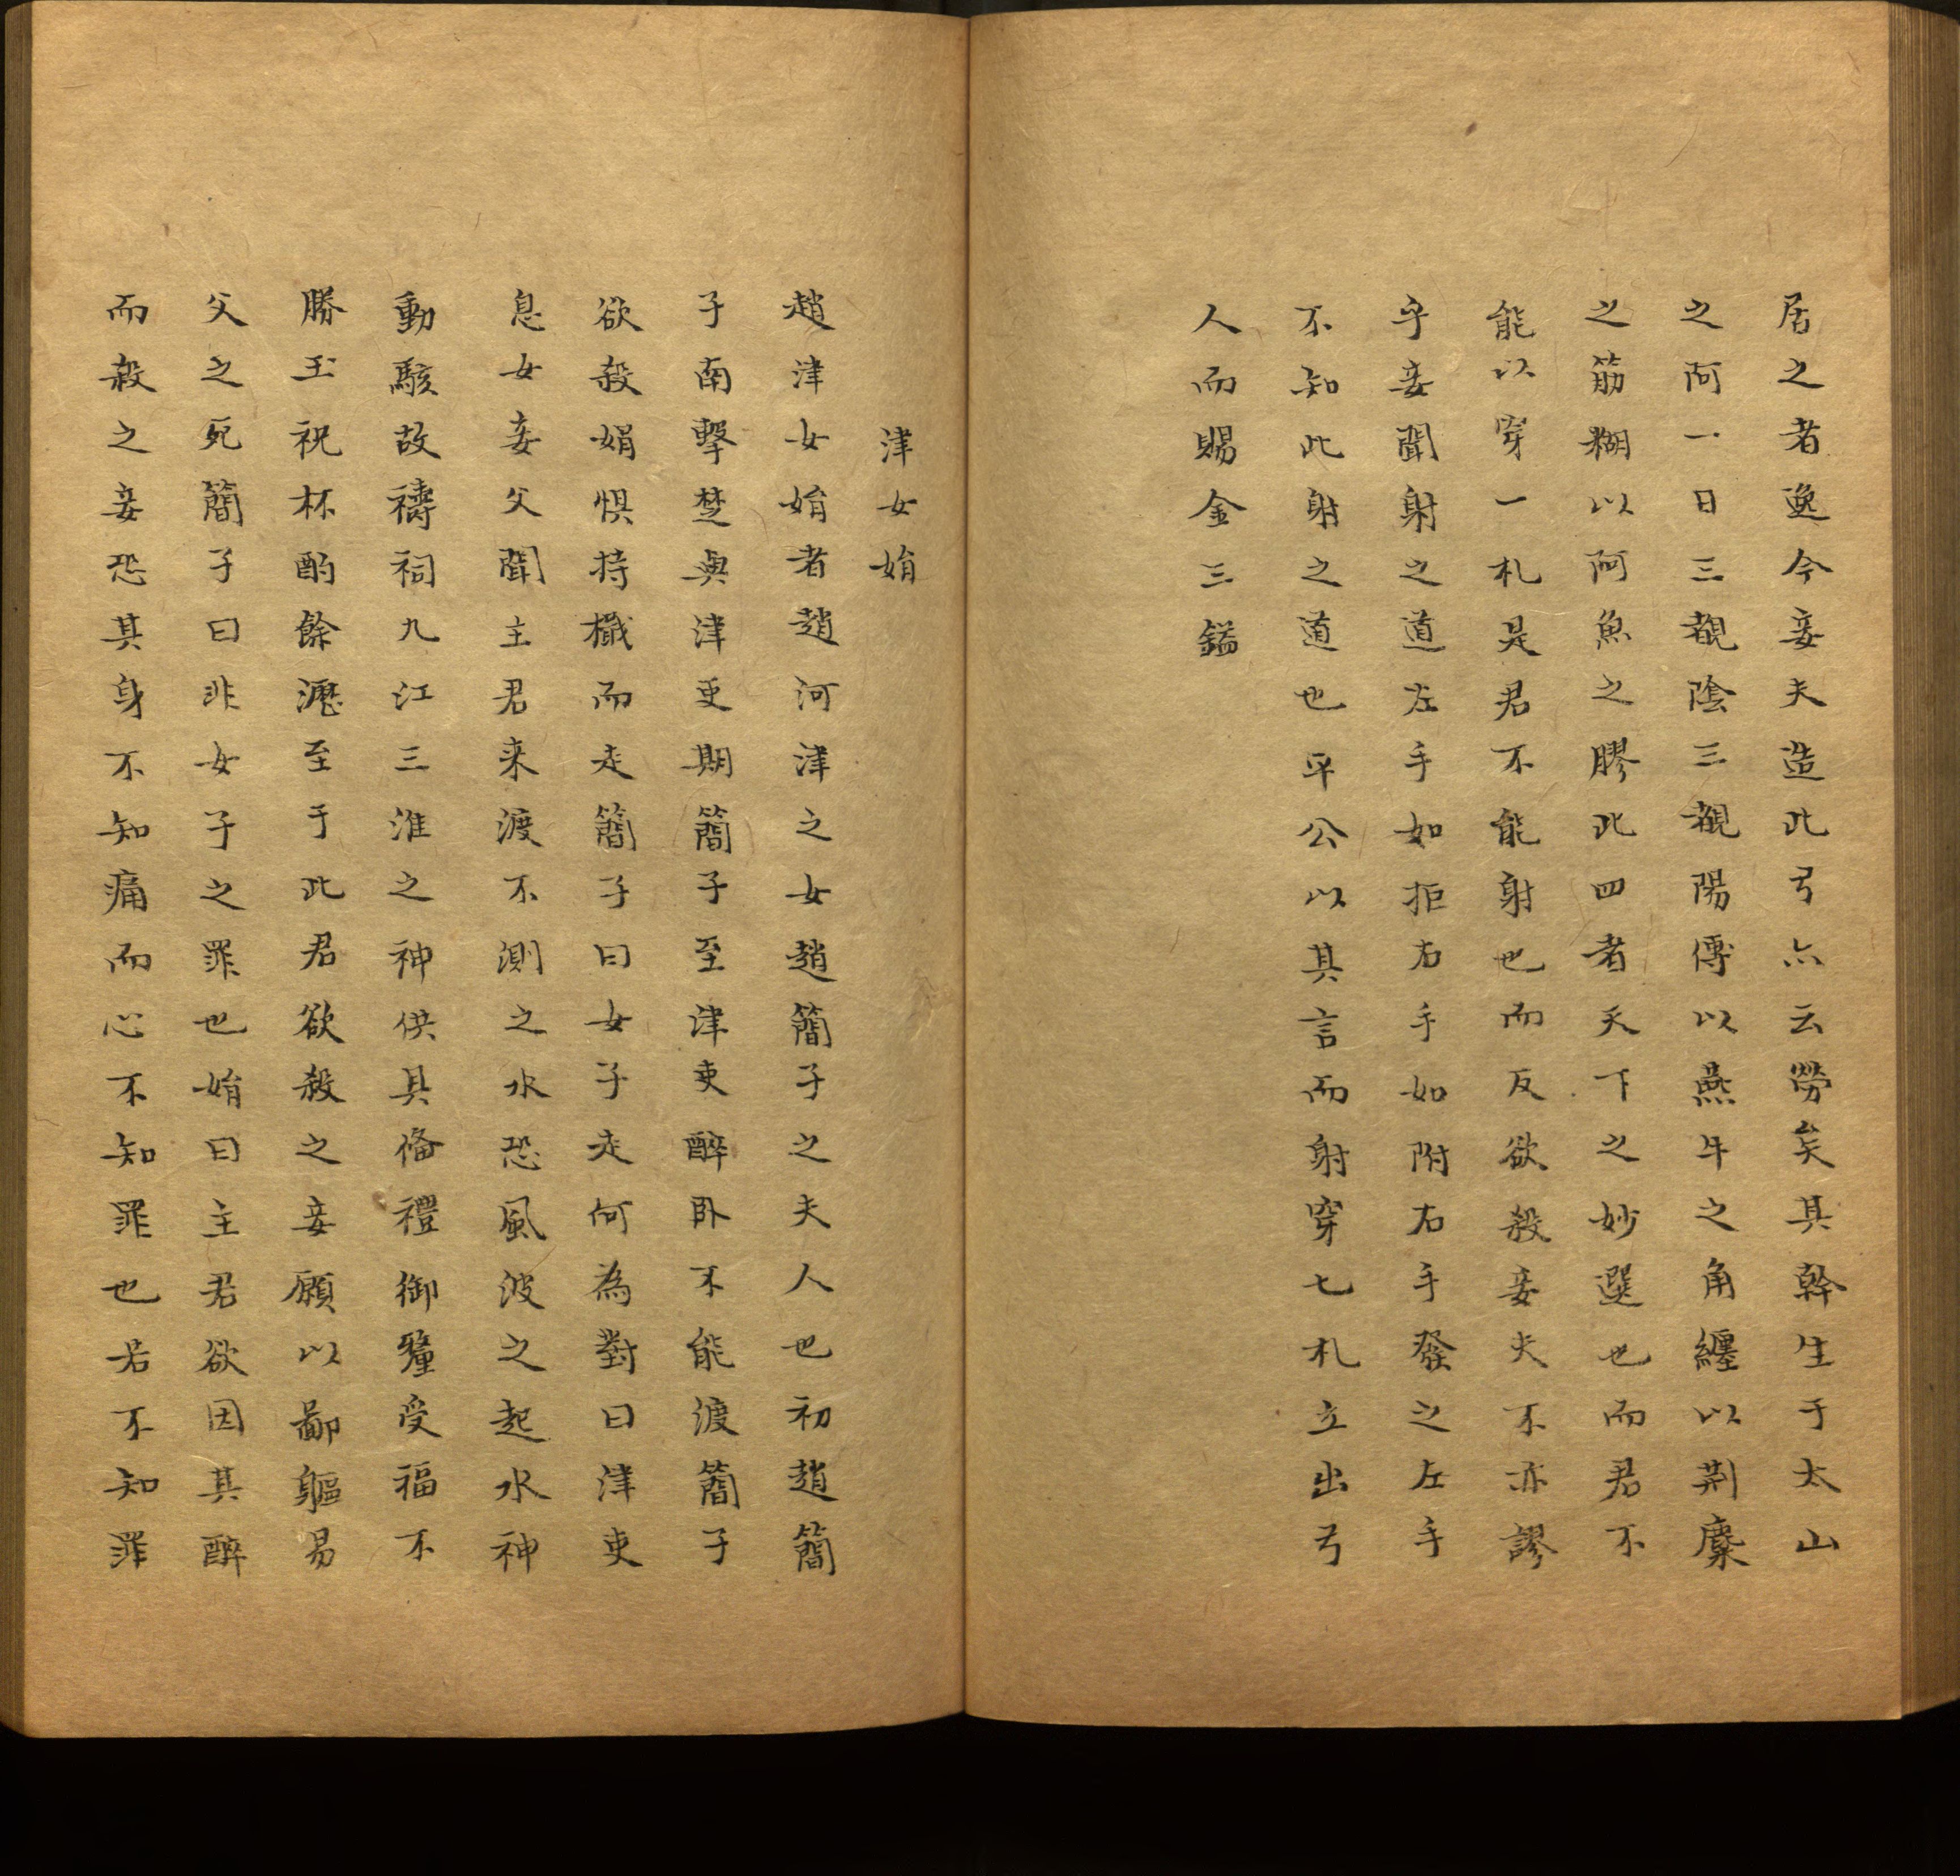 居之者逸今妾夫造此弓亦云勞矣其幹生于太山
之阿一日三覩陰三覩陽傅以燕牛之角纏以荆麋
之筋糊以阿魚之膠此四者天下之妙選也而君不
能以穿一札是君不能射也而反欲殺妾夫不亦謬
乎妾聞射之道左手如拒右手如附右手發之左手
不知此射之道也平公以其言而射穿七札立出弓
人而賜金三鎰
津女娟
趙津女娟者趙河津之女趙簡子之夫人也初趙簡
子南擊楚與津吏期簡子至津吏醉卧不能渡簡子
欲殺娟惧持檝而走簡子曰女子走何為對曰津吏
息女妾父聞主君来渡不測之水恐風波之起水神
動駭故禱祠九江三淮之神供具俻禮御釐受福不
勝玊祝杯酌餘瀝至于此君欲殺之妾願以鄙軀易
父之死簡子曰非女子之罪也娟曰主君欲因其醉
而殺之妾恐其身不知痛而心不知罪也若不知罪